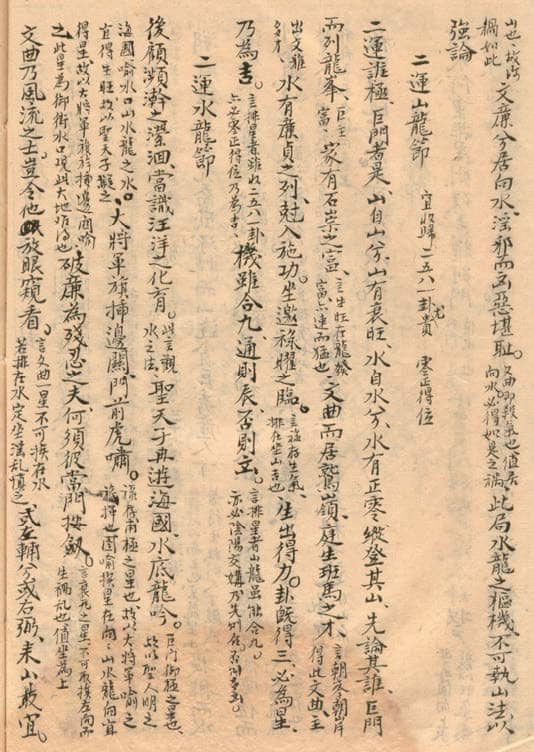 山也、故
禍如此 文廉兮居向水、淫邪而凶惡堪恥。文曲即殺氣也值居
向水必得如是之禍 此局水龍之樞機、不可執山法以
強論
二運山龍節 宜收歸二五八一卦尤貴 零正得位
二運誰極、巨門者是、山自山兮、山有衰旺、水自水兮、水有正零、縱登其山、先論其誰、巨門
而列龍峯、巨主
富、家有石崇之富、言生旺在龍
富亦連而猛也 文曲而居鷲嶺、庭生班馬之才、言朝岑
得此文曲、主
出文雅 水有廉貞之列、兢入施功、坐邀祿曜之臨。言祿存生氣、
排在坐山吉也 生出得力、卦既得三、必為星
乃為吉。言排星者雖收二五八一卦
亦必零正得位乃為吉、 機雖合九、通則辰、否則立。言排星者山龍虽能合九。
亦必陰陽交媾乃
二運水龍節
後顧瀕瀚之瀠洄、當識汪洋之化育。此言觀
水之法、 聖天子再遊海國、水底龍吟。巨門御極之星也、
故以聖人明之
海國喻水口山水龍之水。
宜得生旺故以聖天子擬之 大將軍旗揷邊關、門前虎嘯。祿存南極之星也故以大將軍喻之
旗揮也 星在向水龍向宜
得星故以大將軍旗揷邊關喻
之、此星為御街水口、現此大地 破廉為殘忍之夫、何須彼當門按劔。言衰死之星不可取挨左向而
生禍乱也值坐為上
文曲乃風流之士、豈令他放眼窺看。言文曲一星不可挨在水
若排在水定坐淫乱慎之 弍至輔兮或右弼、來山最宜